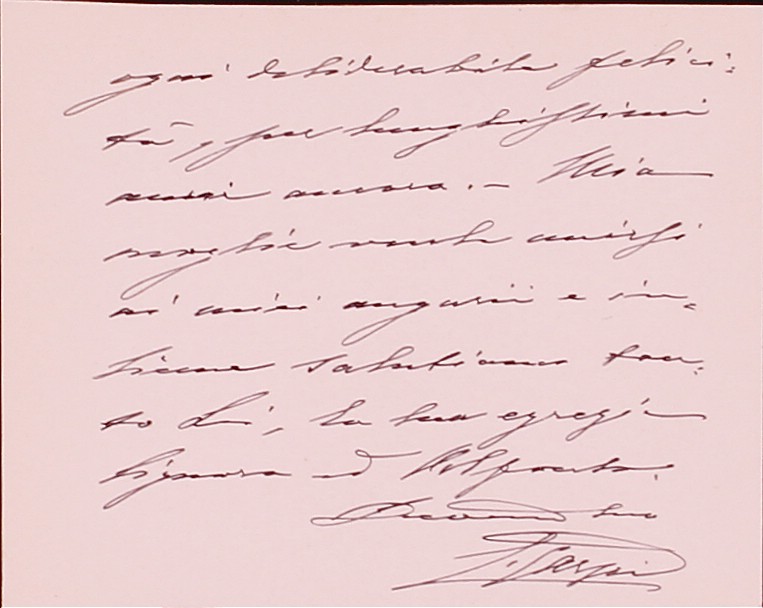 ogni desiderabile felici=
tà, per lunghissimi
anni ancora. — Mia
moglie vuole unirsi
ai miei augurii e in=
sieme salutiamo tan=
to Lei, la sua egregia
Signora ed
suo